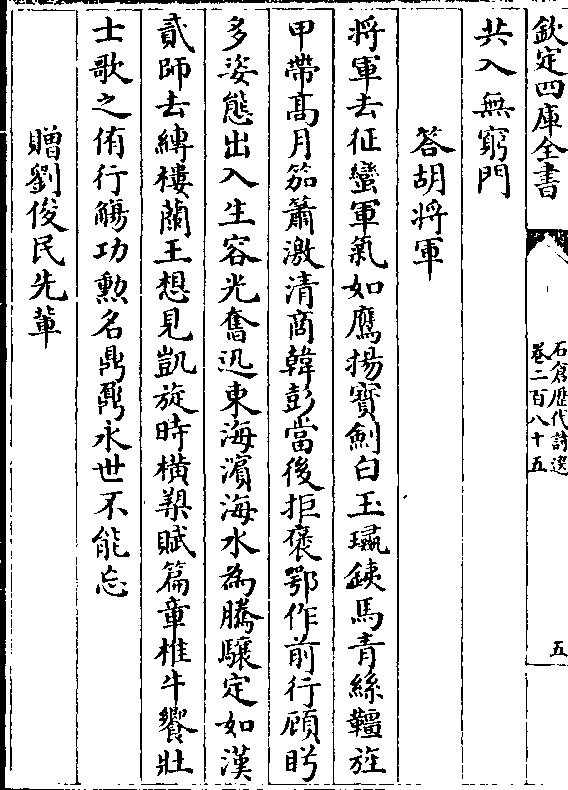 欽定四庫全書
石倉歴代詩選
卷二百八十五
五
共入無窮門
答胡將軍
將軍去征蠻軍氣如鷹揚寳劍白玉㻫鐵馬青絲韁旌
甲帶髙月笳簫激清商韓彭當後拒褒鄂作前行顧盻
多姿態出入生容光奮迅東海濵海水為騰驤定如漢
貳師去縛樓蘭王想見凱旋時横槊賦篇章椎牛饗壯
士歌之侑行觴功勲名鼎鼐永世不能忘
贈劉俊民先輩